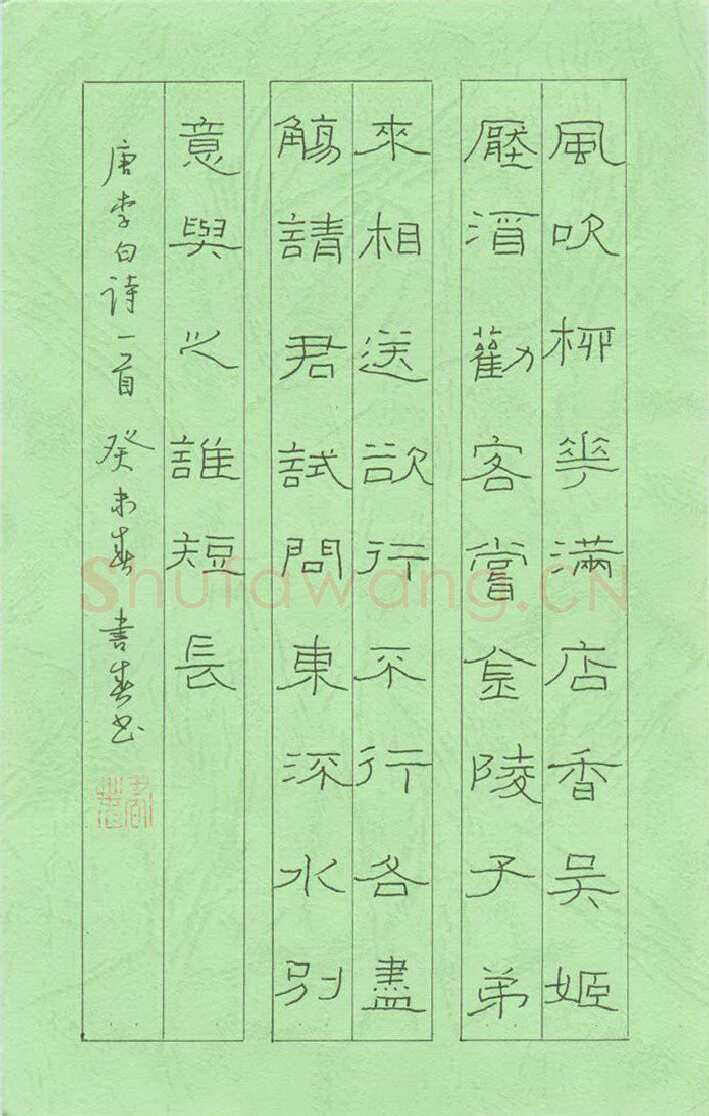 風吹柳華滿店香吳姬
壓酒勸客嘗金陵子弟
來相送欲行不行各盡
觴請君試問東深水別
意與之誰短長
唐李白诗一首 癸未春 書春书
Shufawang.CN